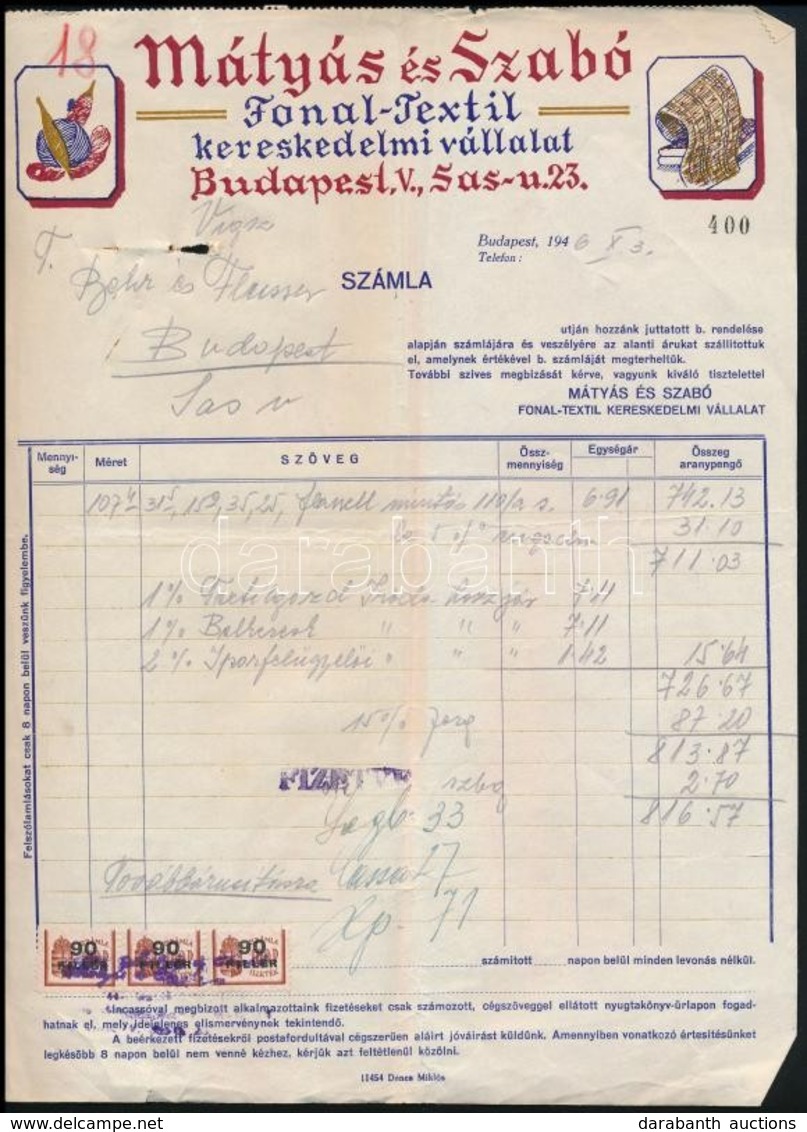 18
Mátyás és Szabó
Fonal-Textil
kereskedelmi vállalat
Budapest, V., Sas-u. 23.
400
Budapest, 1946 X 3.
Telefon:
T.
Behr és
SZÁMLA
Budapest
Sas u
utján hozzánk juttatott b. rendelése
alapján számlájára és veszélyére az alanti árukat szállitottuk
el, amelynek értékével b. számláját megterheltük.
További szives megbizását kérve, vagyunk kiváló tisztelettel
MÁTYÁS ÉS SZABÓ
FONAL-TEXTIL KERESKEDELMI VÁLLALAT
Mennyi-ség Méret SZÖVEG Össz-mennyiség Egységár Összeg aranypengő
flanell mintás 6·91 742·13
5% 31·10
711·03
1% 7·11
1% " " " 7·11
2% Iparfelügyelői " " " 1·42 15·64
726·67
15% 87·20
813·87
2·70
816·57
33
27
71
Felszólamlásokat csak 8 napon belül veszünk figyelembe.
90 90 90
FILLÉR FILLÉR FILLÉR
számitott napon belül minden levonás nélkül.
Incassóval megbizott alkalmazottaink fizetéseket csak számozott, cégszöveggel ellátott nyugtakönyv-ürlapon fogad-
hatnak el, mely ideiglenes elismervénynek tekintendő.
A beérkezett fizetésekről postafordultával cégszerűen aláirt jóváirást küldünk. Amennyiben vonatkozó értesitésünket
legkésőbb 8 napon belül nem venné kézhez, kérjük azt feltétlenül közölni.
11454 Dence Miklós
darabanth
darabanth auctions